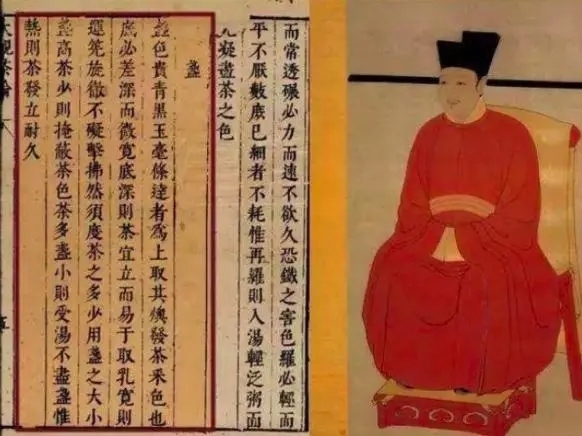 而常透碾必力而速不欲久恐鐵之害色羅必輕而
平不厭數庶已細者不耗惟再羅則入湯輕泛粥面
凝盡茶之色
盞
盞色貴青黑玉毫條達者爲上取其燠發茶采色也
底必差深而微寬底深則茶宜立而易于取乳寬則
運筅旋徹不礙擊拂然須度茶之多少用盞之大小
盞高茶少則掩蔽茶色茶多盞小則受湯不盡盞惟
熱則茶發立耐久
大觀茶論
五